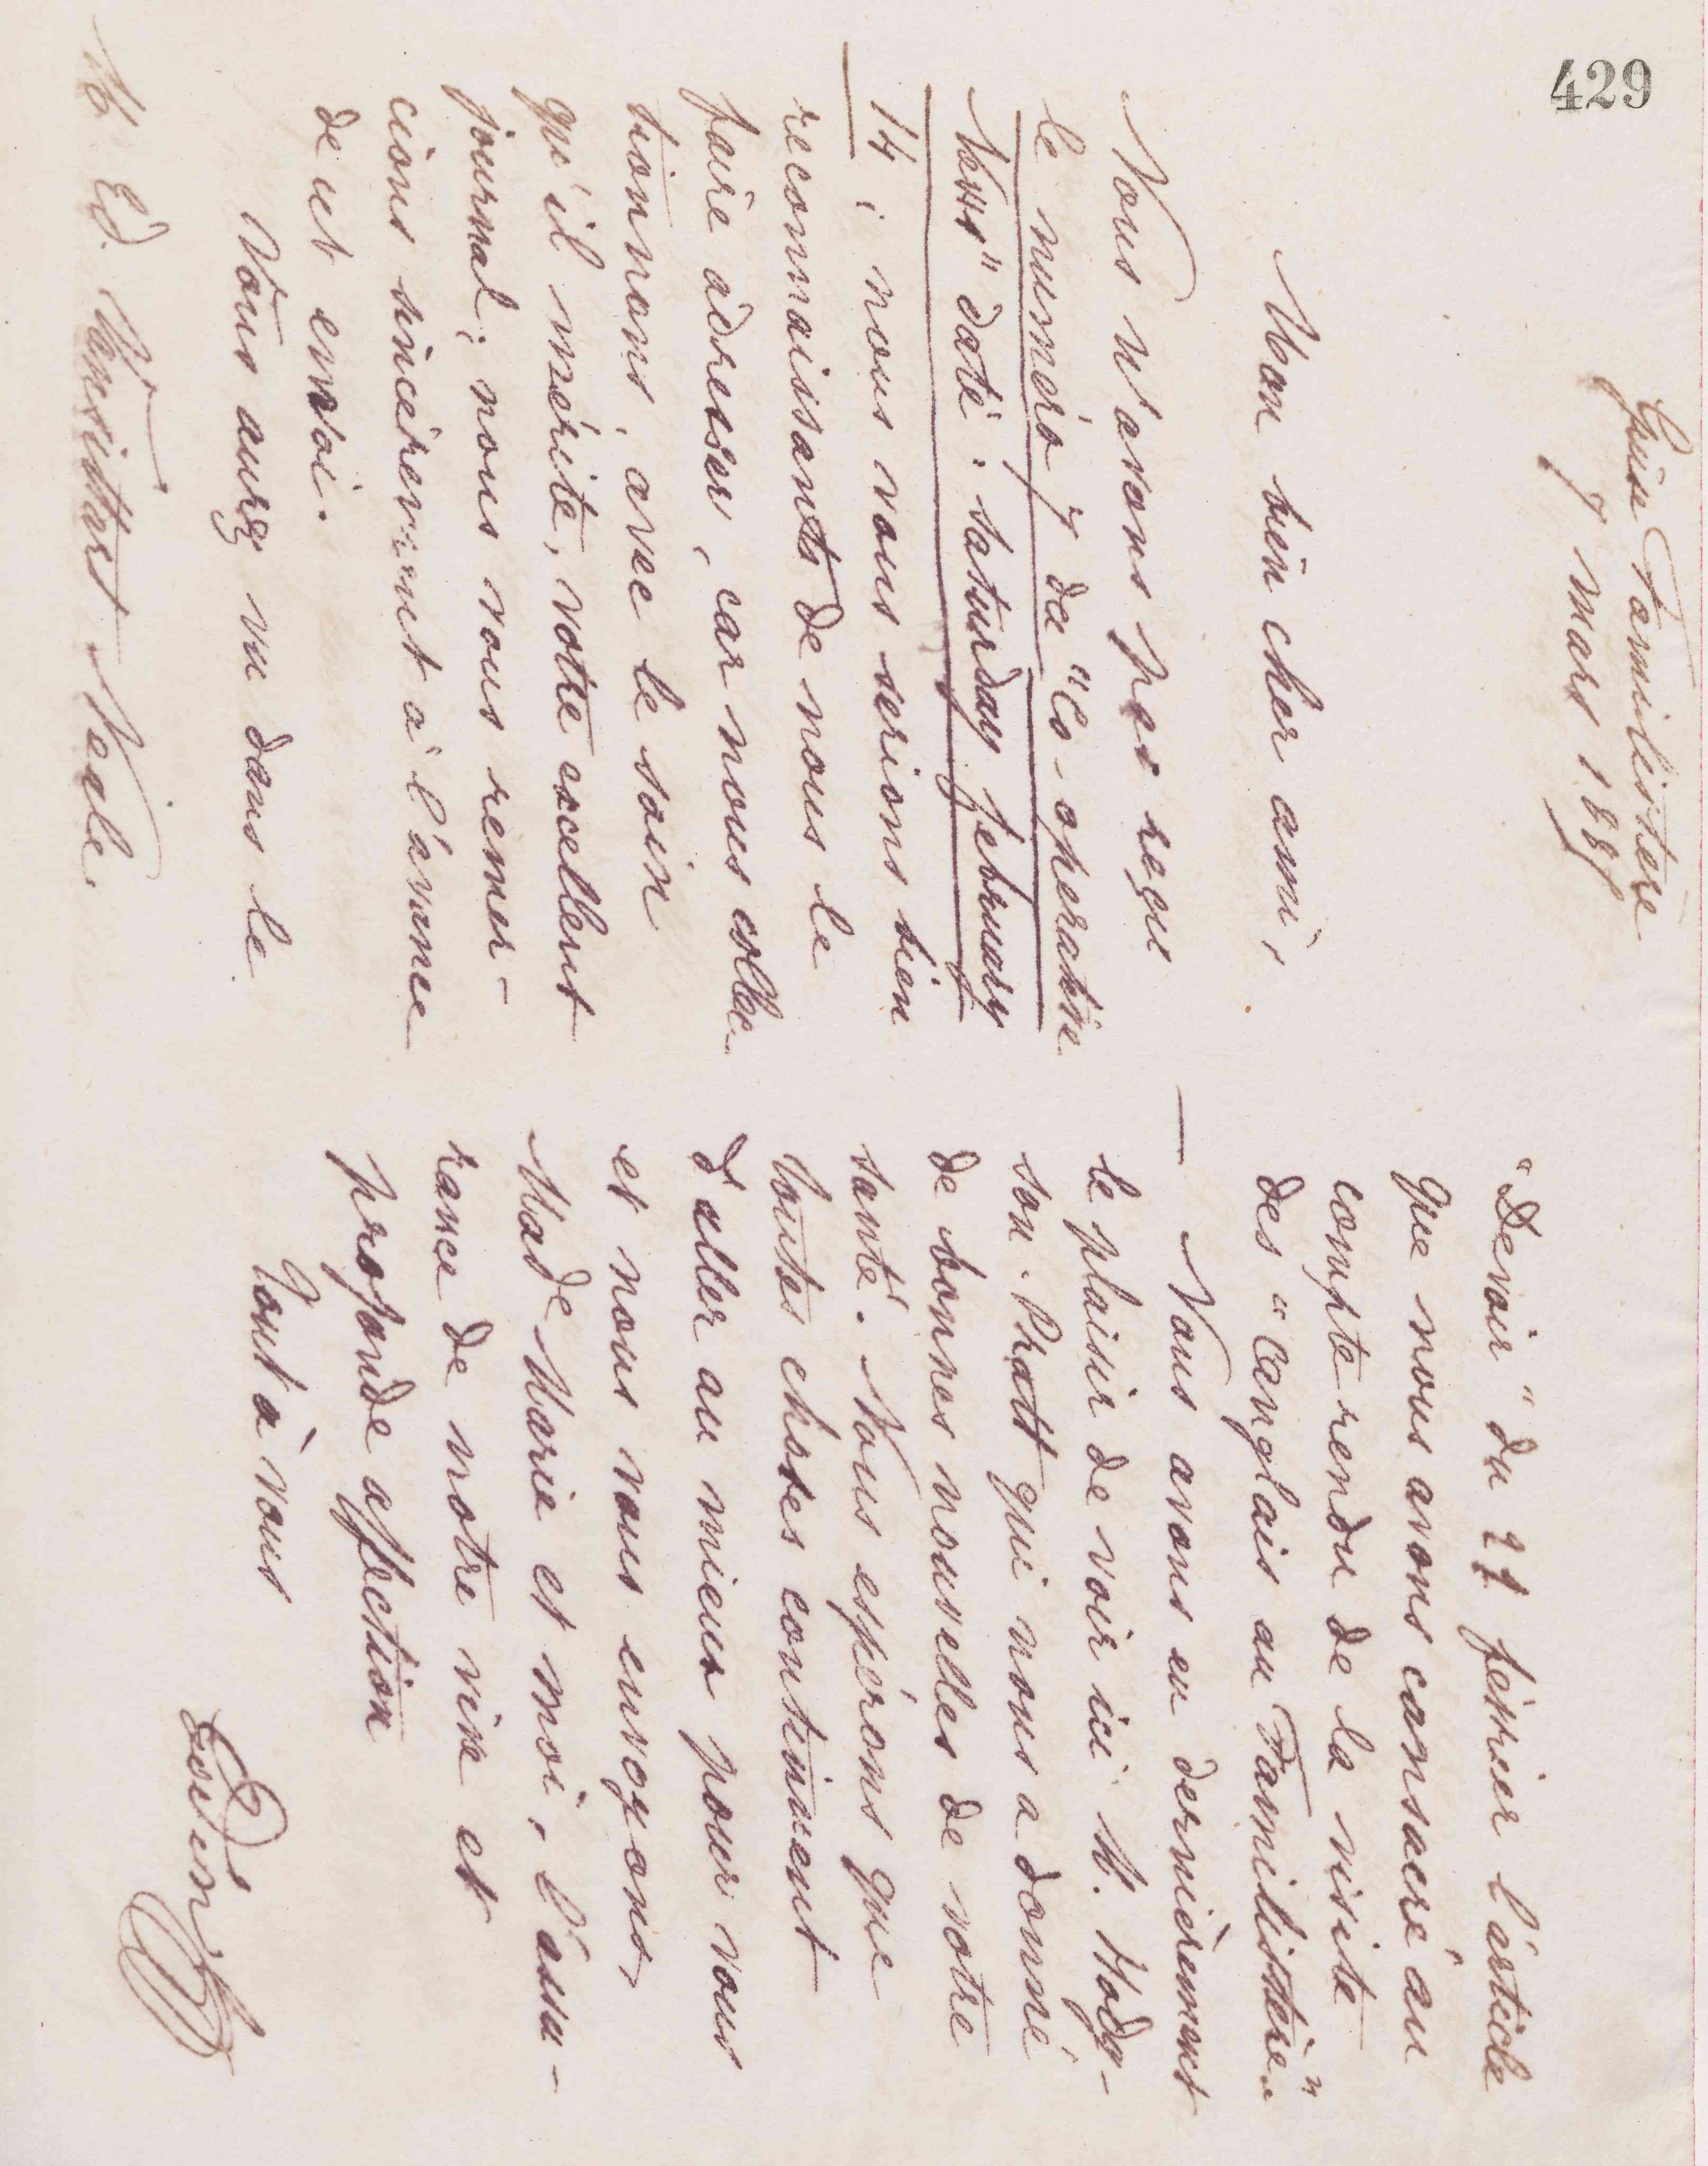 429
Guise Familistère
7 mars 1885
Mon bien cher ami,
Nous n'avons pas reçu
le numéro 7 du "Co-operative
News" daté : saturday february
14 ; nous vous serions bien
reconnaissants de nous le
faire adresser, car nous collec-
tionnons, avec le soin
qu'il mérite, votre excellent
journal ; nous vous remer-
cions sincèrement à l'avance
de cet envoi.
Vous aurez vu dans le
M. Ed. Vansittart Neale.
"Devoir" du février l'article
que nous avons consacré au
compte rendu de la visite
des "anglais au Familistère"
— Nous avons eu dernièrement
le plaisir de voir ici M. Hodg-
son-Pratt qui nous a donné
de bonnes nouvelles de votre
santé. Nous espérons que
toutes choses continuent
d'aller au mieux pour vous
et nous vous envoyons,
Made Marie et moi, l'assu-
rance de notre vive et
profonde affection
Tout à vous
Godin